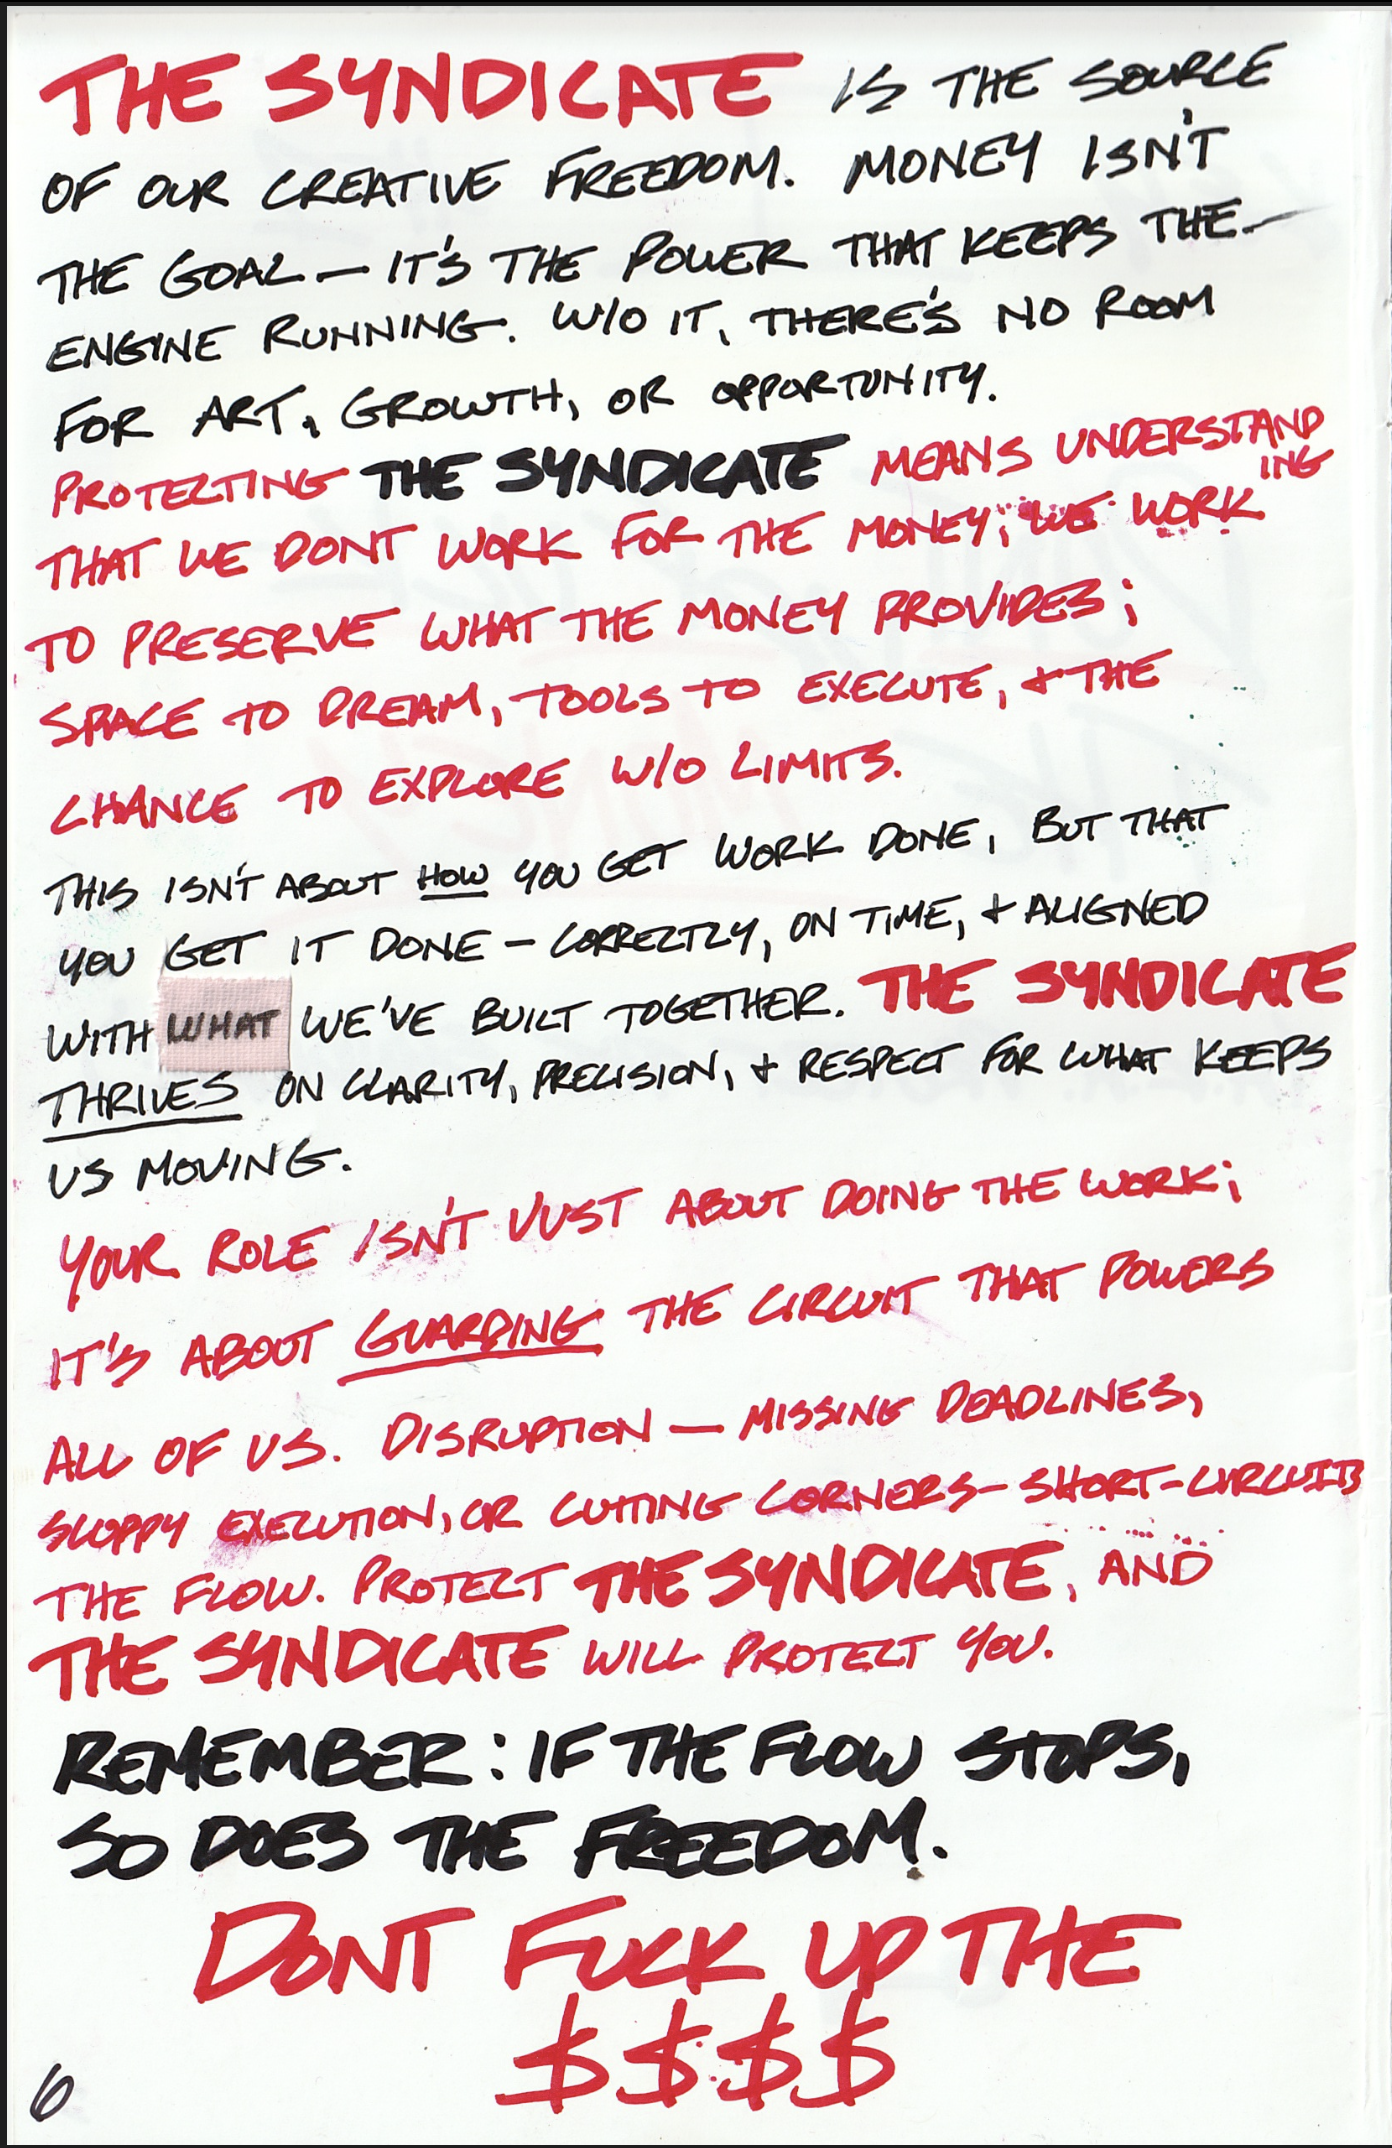 THE SYNDICATE IS THE SOURCE
OF OUR CREATIVE FREEDOM. MONEY ISN'T
THE GOAL — IT'S THE POWER THAT KEEPS THE
ENGINE RUNNING. W/O IT, THERE'S NO ROOM
FOR ART, GROWTH, OR OPPORTUNITY.
PROTECTING THE SYNDICATE MEANS UNDERSTAND
ING
THAT WE DONT WORK FOR THE MONEY; WE WORK
TO PRESERVE WHAT THE MONEY PROVIDES;
SPACE TO DREAM, TOOLS TO EXECUTE, & THE
CHANCE TO EXPLORE W/O LIMITS.
THIS ISN'T ABOUT HOW YOU GET WORK DONE, BUT THAT
YOU GET IT DONE – CORRECTLY, ON TIME, & ALIGNED
WITH WHAT WE'VE BUILT TOGETHER. THE SYNDICATE
THRIVES ON CLARITY, PRECISION, & RESPECT FOR WHAT KEEPS
US MOVING.
YOUR ROLE ISN'T JUST ABOUT DOING THE WORK;
IT'S ABOUT GUARDING THE CIRCUIT THAT POWERS
ALL OF US. DISRUPTION — MISSING DEADLINES,
SLOPPY EXECUTION, OR CUTTING CORNERS – SHORT-CIRCUITS
THE FLOW. PROTECT THE SYNDICATE, AND
THE SYNDICATE WILL PROTECT YOU.
REMEMBER: IF THE FLOW STOPS,
SO DOES THE FREEDOM.
DONT FUCK UP THE
$$$$
6